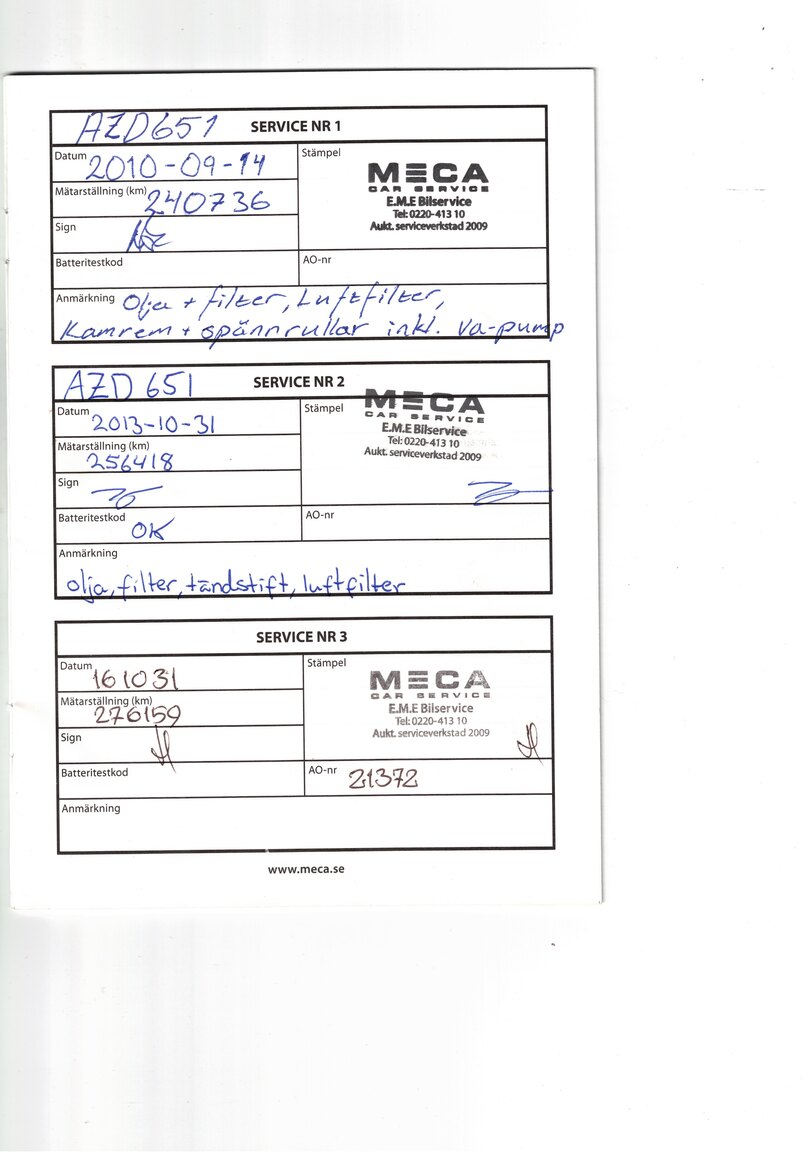 AZD651 SERVICE NR 1
Datum 2010-09-14
Stämpel
MECA
CAR SERVICE
E.M.E Bilservice
Tel: 0220-413 10
Aukt. serviceverkstad 2009
Mätarställning (km) 240736
Sign
Batteritestkod
AO-nr
Anmärkning Olja + filter, Luftfilter,
Kamrem + spännrullar inkl. Va-pump
AZD 651 SERVICE NR 2
Datum 2013-10-31
Stämpel
MECA
CAR SERVICE
E.M.E Bilservice
Tel: 0220-413 10
Aukt. serviceverkstad 2009
Mätarställning (km)
256418
Sign
Batteritestkod OK
AO-nr
Anmärkning
olja, filter, tändstift, luftfilter
SERVICE NR 3
Datum 161031
Stämpel
MECA
CAR SERVICE
E.M.E Bilservice
Tel: 0220-413 10
Aukt. serviceverkstad 2009
Mätarställning (km)
276159
Sign
Batteritestkod
AO-nr 21372
Anmärkning
www.meca.se